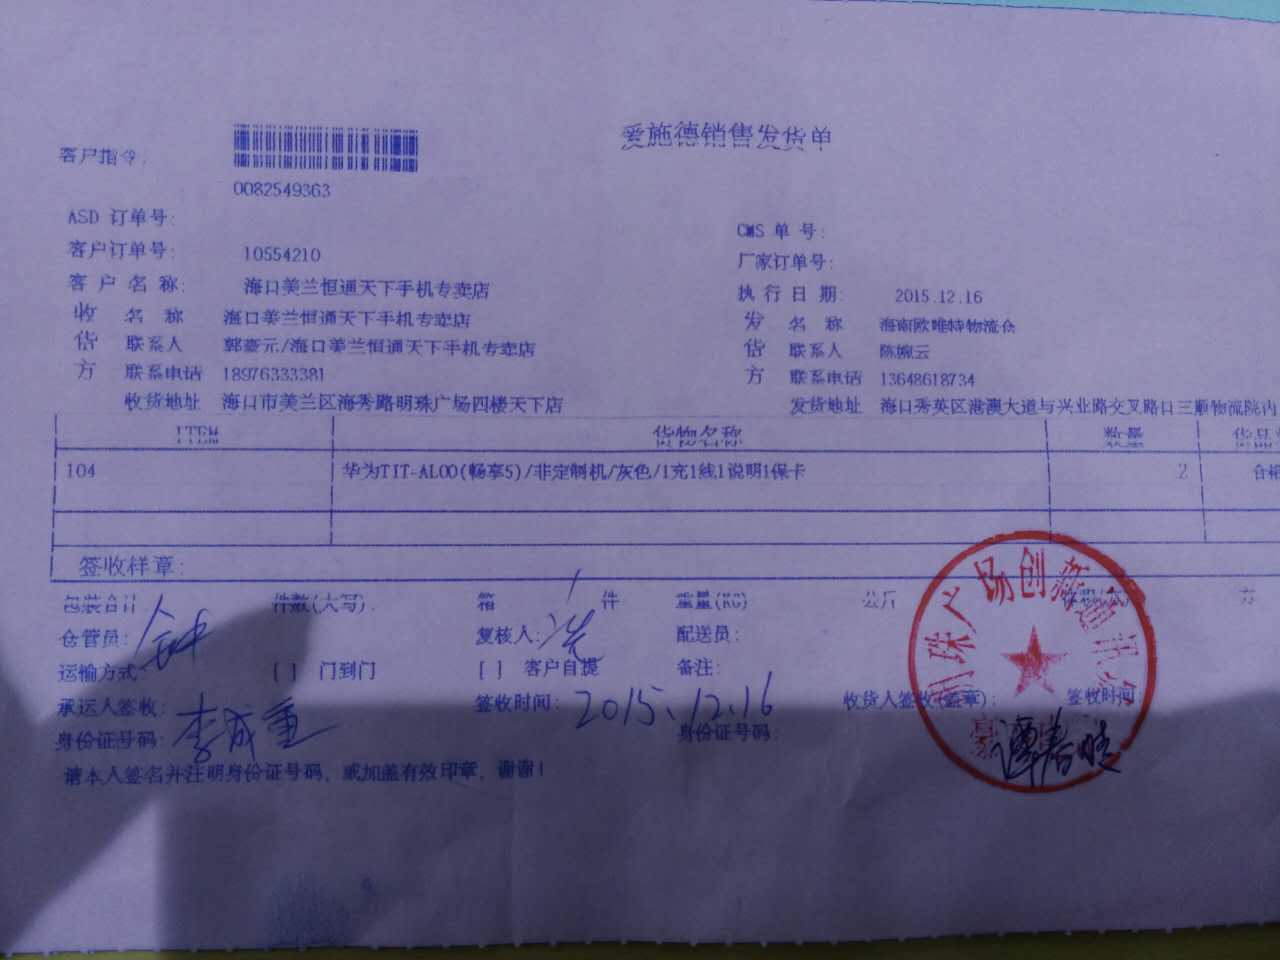 爱施德销售发货单
客户指令:
0082549363
ASD 订单号:
CMS 单 号:
客户订单号: 10554210
厂家订单号:
客 户 名 称: 海口美兰恒通天下手机专卖店
执 行 日 期: 2015.12.16
收 名 称 海口美兰恒通天下手机专卖店
发 名 称 海南欧唯特物流仓
货 联系人 郭豪元/海口美兰恒通天下手机专卖店
货 联系人 陈婉云
方 联系电话 18976333381
方 联系电话 13648618734
收货地址 海口市美兰区海秀路明珠广场四楼天下店
发货地址 海口秀英区港澳大道与兴业路交叉路口三顺物流院内
ITEM 货物名称 数量 货品
104 华为TIT-AL00(畅享5)/非定制机/灰色/1充1线1说明1保卡 2 合格
签收样章:
包装合计: 件数(大写): 箱 1 件 重量(KG) 公斤 方
仓管员: 钟 复核人: 配送员:
运输方式: [ ] 门到门 [ ] 客户自提 备注:
承运人签收: 李成重 签收时间: 2015.12.16 收货人签收(盖章): 签收时间:
身份证号码: 身份证号码:
请本人签名并注明身份证号码, 或加盖有效印章, 谢谢!
明珠广场创新通讯